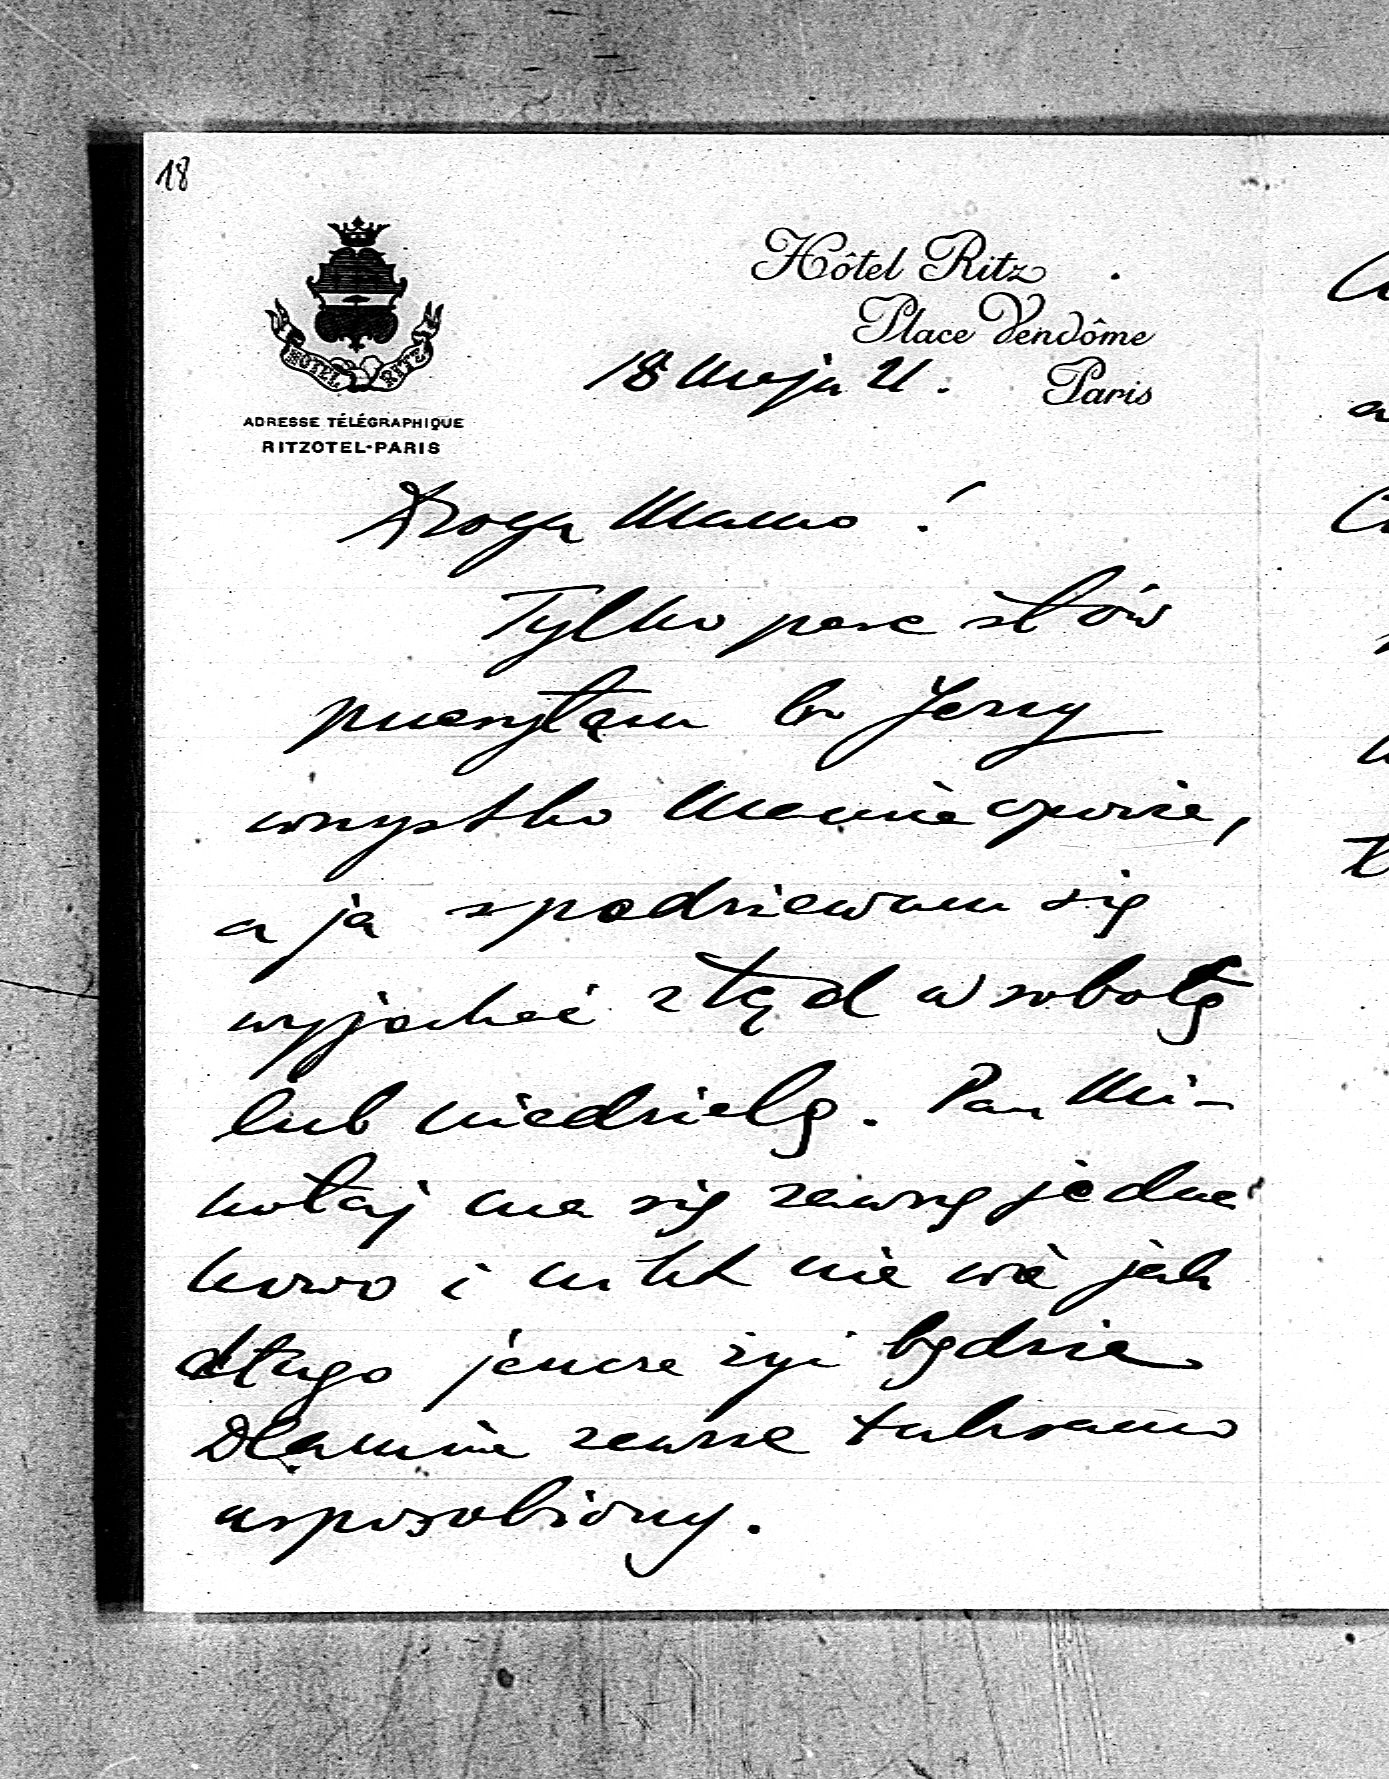 18
HOTEL RITZ
ADRESSE TÉLÉGRAPHIQUE
RITZOTEL-PARIS
Hôtel Ritz
Place Vendôme
Paris
18 Maja 21.
Droga Mamo!
Tylko parę słów
przesyłam bo Jerzy
wszystko Mamie opowie,
a ja spodziewam się
wyjechać ztąd w sobotę
lub niedzielę. Pan Mi-
kołaj ma się zawsze jedna
kowo i nikt nie wie jak
długo jeszcze żyć będzie
Dla mnie zawsze tak samo
usposobiony.